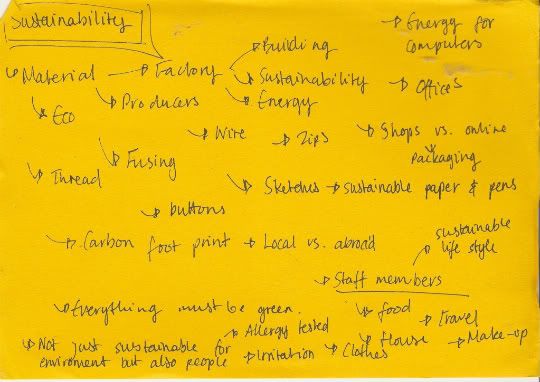 Sustainability
Energy for
computers
Building
Material Factory Sustainability
Offices
Energy
Eco Producers
Wire Zips Shops vs. online
packaging
Fusing
Thread
Sketches sustainable paper & pens
buttons
Carbon foot print Local vs. abroad
sustainable
life style
Staff members
Everything must be green. food
travel
Allergy tested
House
Make-up
Not just sustainable for
enviroment but also people Irritation Clothes